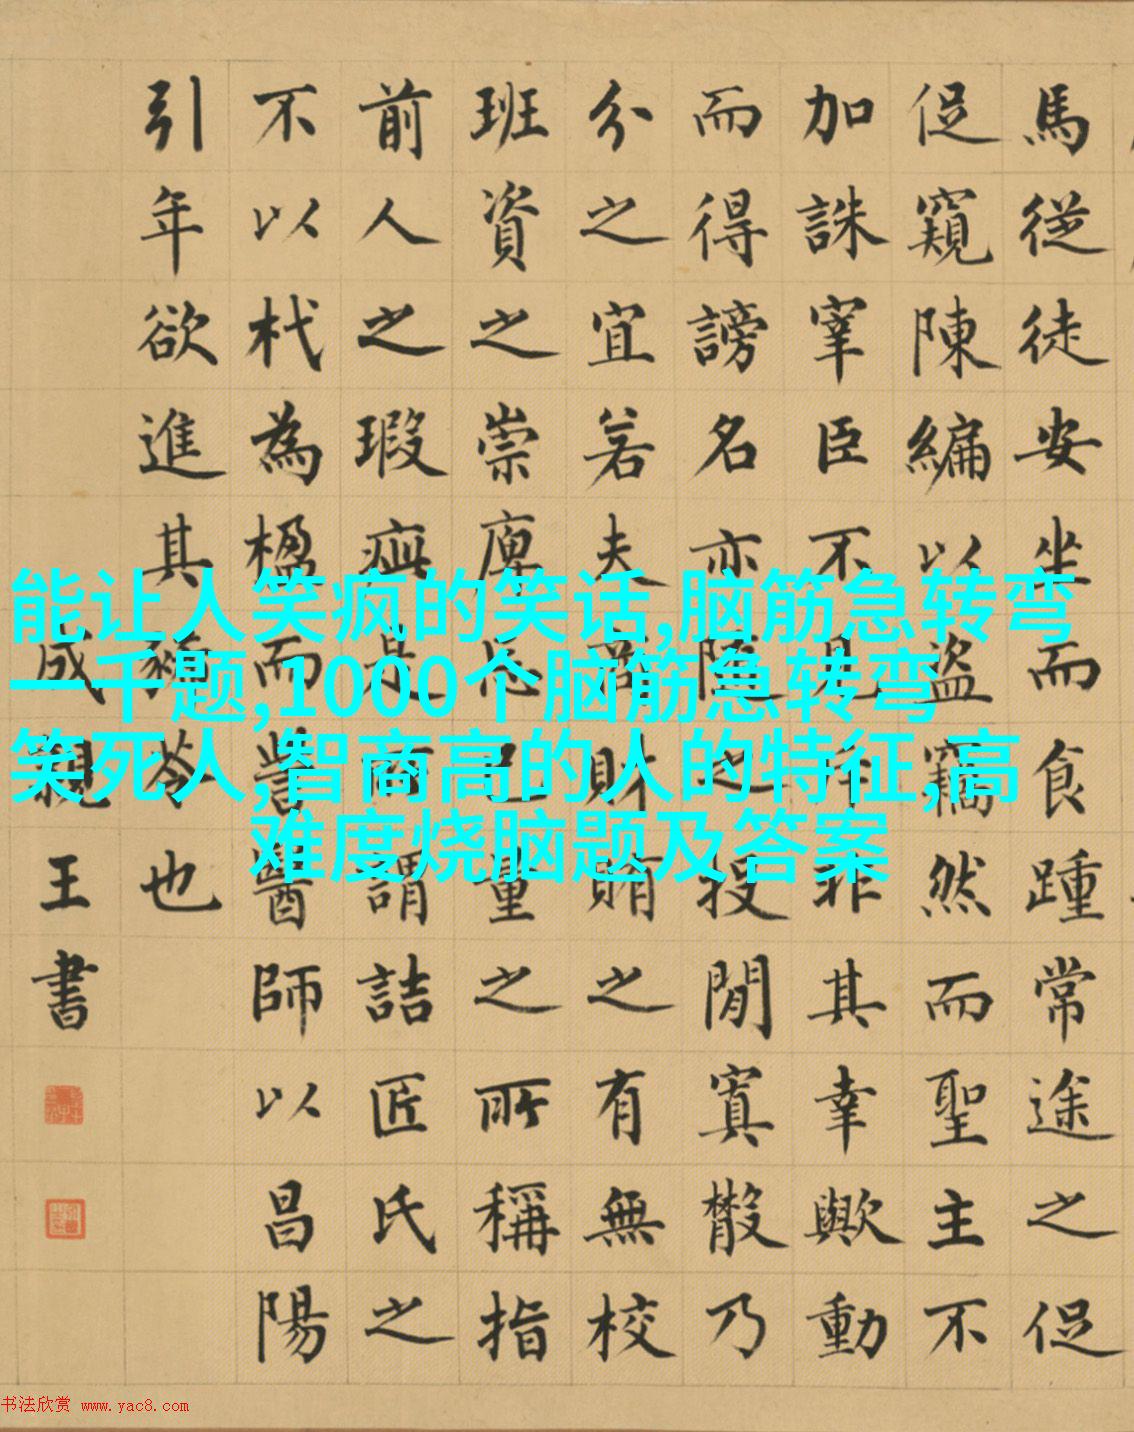 馬從徒安坐而食踵常途之促
促窺陳編以盜竊然而聖主不
加誅宰臣不見斥非其幸歟動
而得謗名亦隨之投閒寘散乃
分之宜若夫商財賄之有無校
班資之崇庳忘己量之所稱指
前人之瑕疵是所謂詰匠氏之
不以杙為楹而訾醫師以昌陽
引年欲進其豨苓也
成親王書
能让人笑疯的笑话,脑筋急转弯
一千题,1000个脑筋急转弯
笑死人,智商高的人的特征,高
难度烧脑题及答案
书法欣赏 www.yac8.com